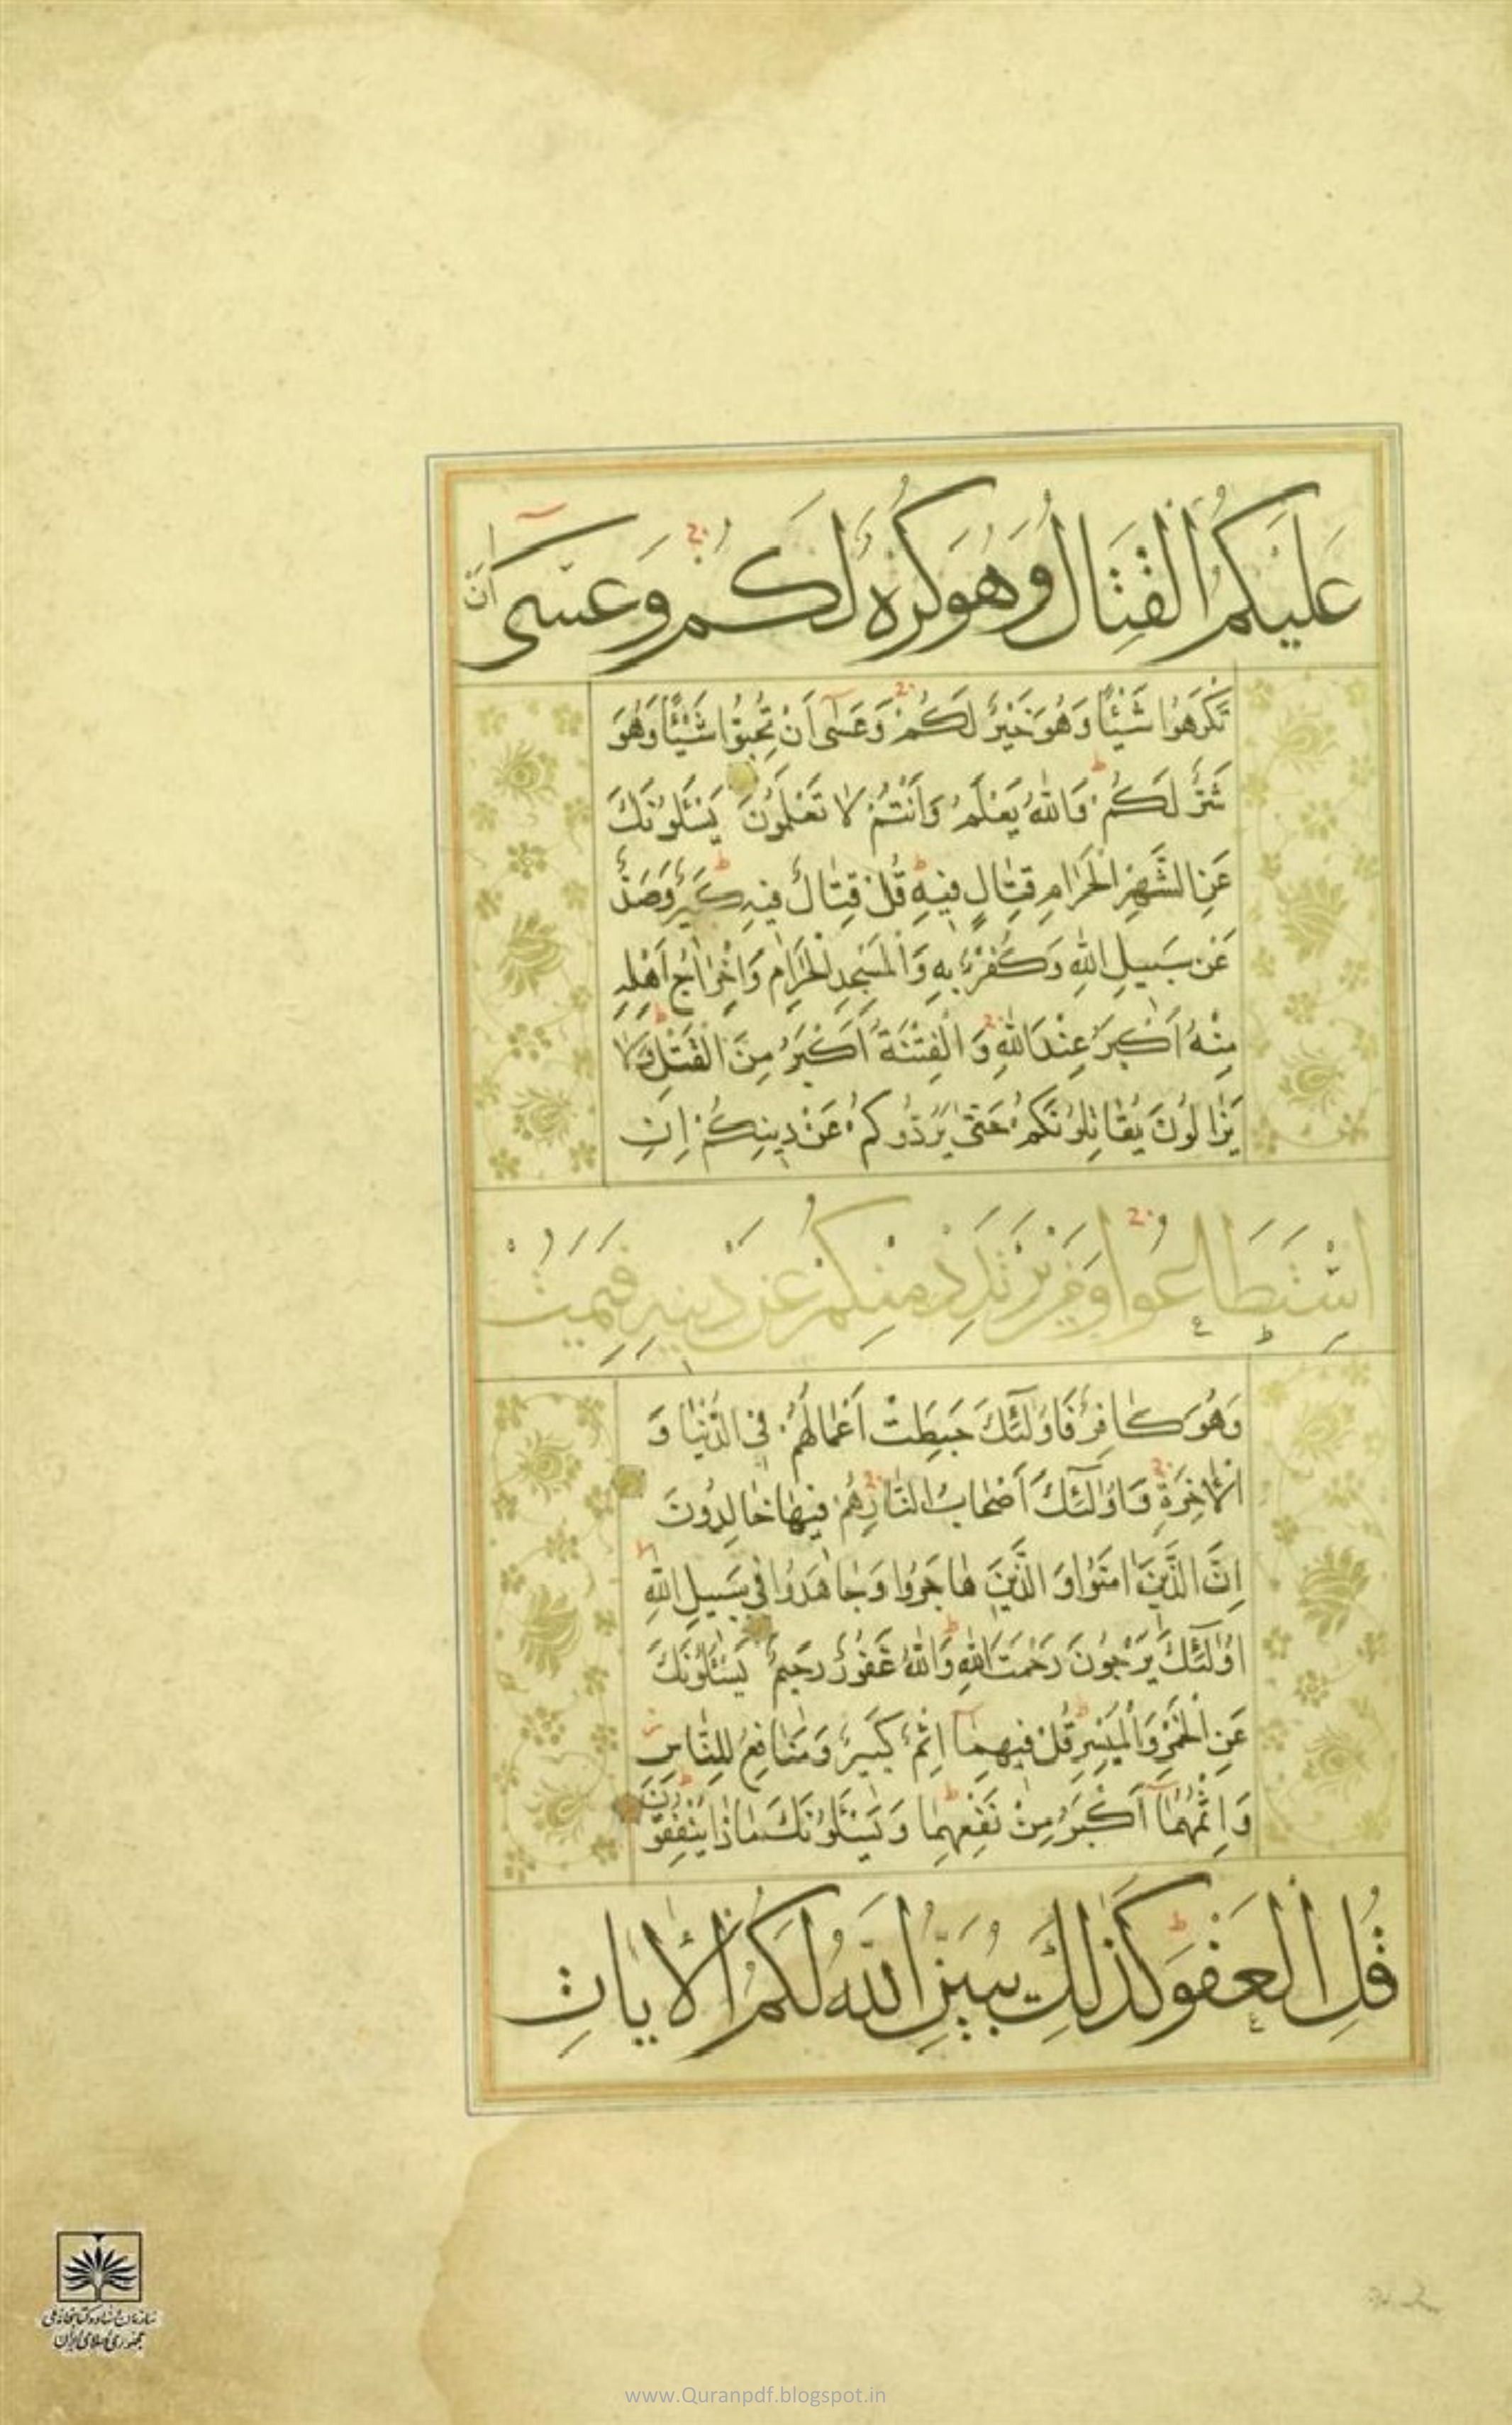 عَلَيْكُمُ الْقِتَالُ وَهُوَ كُرْهٌ لَكُمْ وَعَسٰى اَنْ
تَكْرَهُوا شَيْئًا وَهُوَ خَيْرٌ لَكُمْ وَعَسٰى اَنْ تُحِبُّوا شَيْئًا وَهُوَ
شَرٌّ لَكُمْ وَاللّٰهُ يَعْلَمُ وَاَنْتُمْ لَا تَعْلَمُونَ يَسْئَلُونَكَ
عَنِ الشَّهْرِ الْحَرَامِ قِتٰالٍ فِيهِ قُلْ قِتٰالٌ فِيهِ كَبِيرٌ وَصَدٌّ
عَنْ سَبِيلِ اللّٰهِ وَكُفْرٌ بِهِ وَالْمَسْجِدِ الْحَرٰامِ وَاِخْرٰاجُ اَهْلِهِ
مِنْهُ اَكْبَرُ عِنْدَ اللّٰهِ وَالْفِتْنَةُ اَكْبَرُ مِنَ الْقَتْلِ وَلَا
يَزٰالُونَ يُقٰاتِلُونَكُمْ حَتّٰى يَرُدُّوكُمْ عَنْ دِينِكُمْ اِنِ
اسْتَطَاعُوا وَمَنْ يَرْتَدِدْ مِنْكُمْ عَنْ دِينِهِ فَيَمُتْ
وَهُوَ كٰافِرٌ فَاُولٰئِكَ حَبِطَتْ اَعْمَالُهُمْ فِي الدُّنْيٰا وَ
الْاٰخِرَةِ وَاُولٰئِكَ اَصْحٰابُ النّٰارِ هُمْ فِيهٰا خٰالِدُونَ
اِنَّ الَّذِينَ اٰمَنُوا وَ الَّذِينَ هٰاجَرُوا وَجٰاهَدُوا فِي سَبِيلِ اللّٰهِ
اُولٰئِكَ يَرْجُونَ رَحْمَتَ اللّٰهِ وَاللّٰهُ غَفُورٌ رَحِيمٌ يَسْئَلُونَكَ
عَنِ الْخَمْرِ وَالْمَيْسِرِ قُلْ فِيهِمٰا اِثْمٌ كَبِيرٌ وَمَنٰافِعُ لِلنّٰاسِ
وَاِثْمُهُمٰا اَكْبَرُ مِنْ نَفْعِهِمٰا وَيَسْئَلُونَكَ مٰاذٰا يُنْفِقُونَ
قُلِ الْعَفْوَ كَذٰلِكَ يُبَيِّنُ اللّٰهُ لَكُمُ الْاٰيَاتِ
سازمان اسناد و کتابخانه ملی
جمهوری اسلامی ایران
www.Quranpdf.blogspot.in